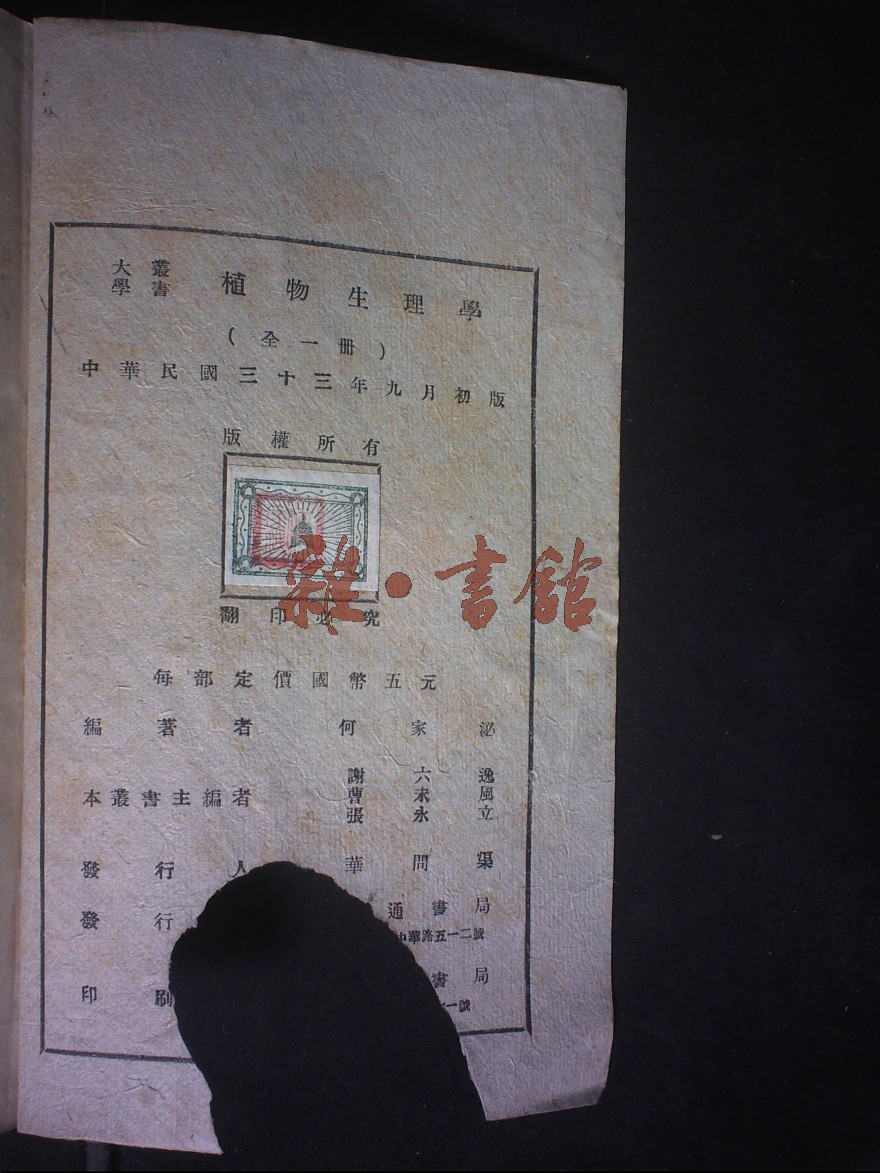 大學叢書 植物生理學
(全一册)
中華民國三十三年九月初版
版權所有
雜·書館
翻印必究
每部定價國幣五元
編著者 何家泌
本叢書主編者 謝六逸
曹未風
張永立
發行人 華問渠
發行 通書局
中華路五一二號
印刷 書局
一號